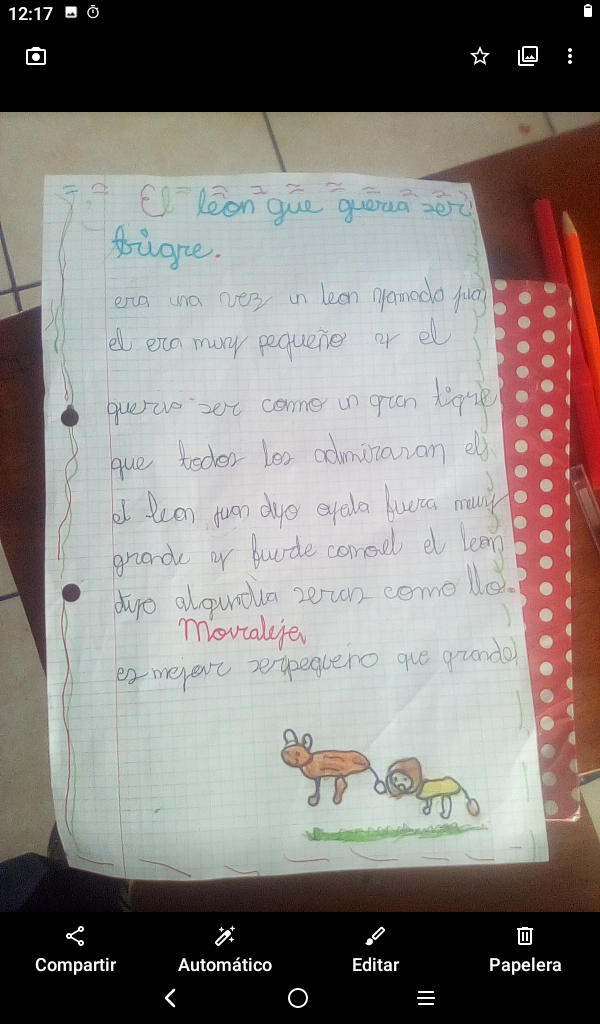 12:17
El leon que queria ser
trigre.
era una vez un leon yamado juan
el era muy pequeño y el
queria ser como un gran tigre
que todos los admiraran el
el leon juan dijo ojala fuera muy
grande y fuerde comoel el leon
dijo algundia seras como llo.
Morraleja
es mejor serpequeño que grande
Compartir
Automático
Editar
Papelera